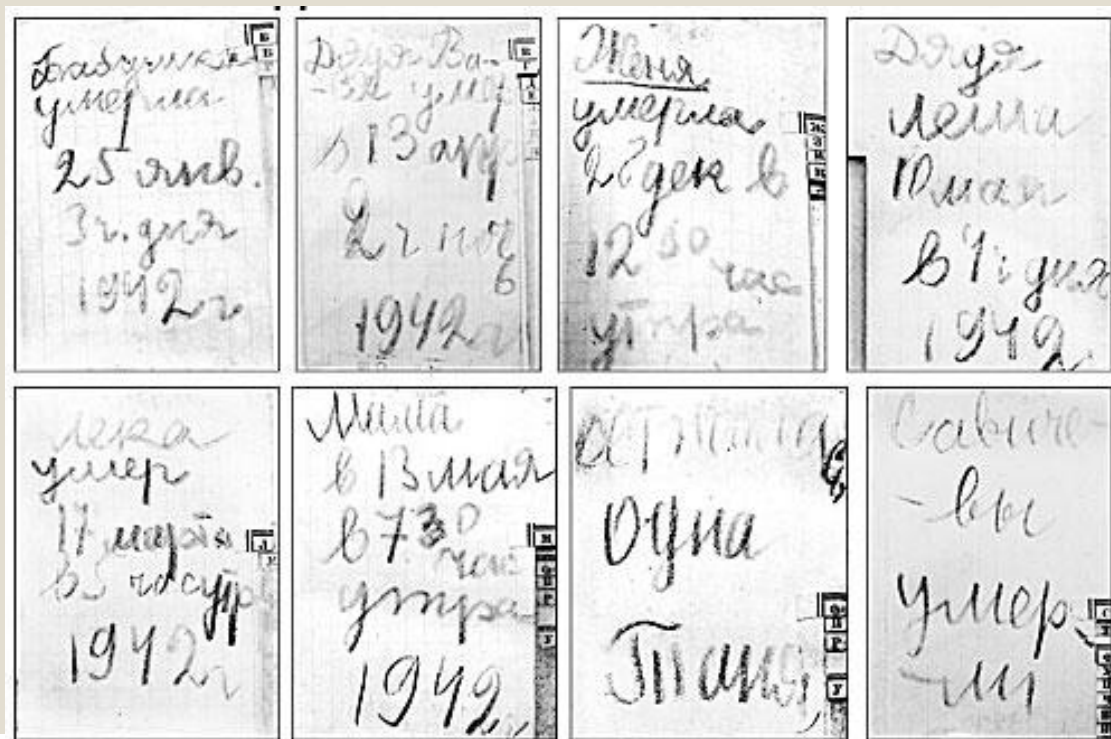 Бабушка
умерла
25 янв.
3 ч. дня
1942 г
Дядя Ва-
-ся умер
в 13 апр
2 ч ноч
ь
1942 г
Женя
умерла
28 дек в
12 30
час
утра
Дядя
Леша
10 мая
в 4 ч дня
1942
Лека
умер
17 марта
в 5 час утр
1942 г
Мама
в 13 мая
в 7 30
час
утра
1942 г
Осталась
одна
Таня
Савиче-
-вы
умер-
-ли